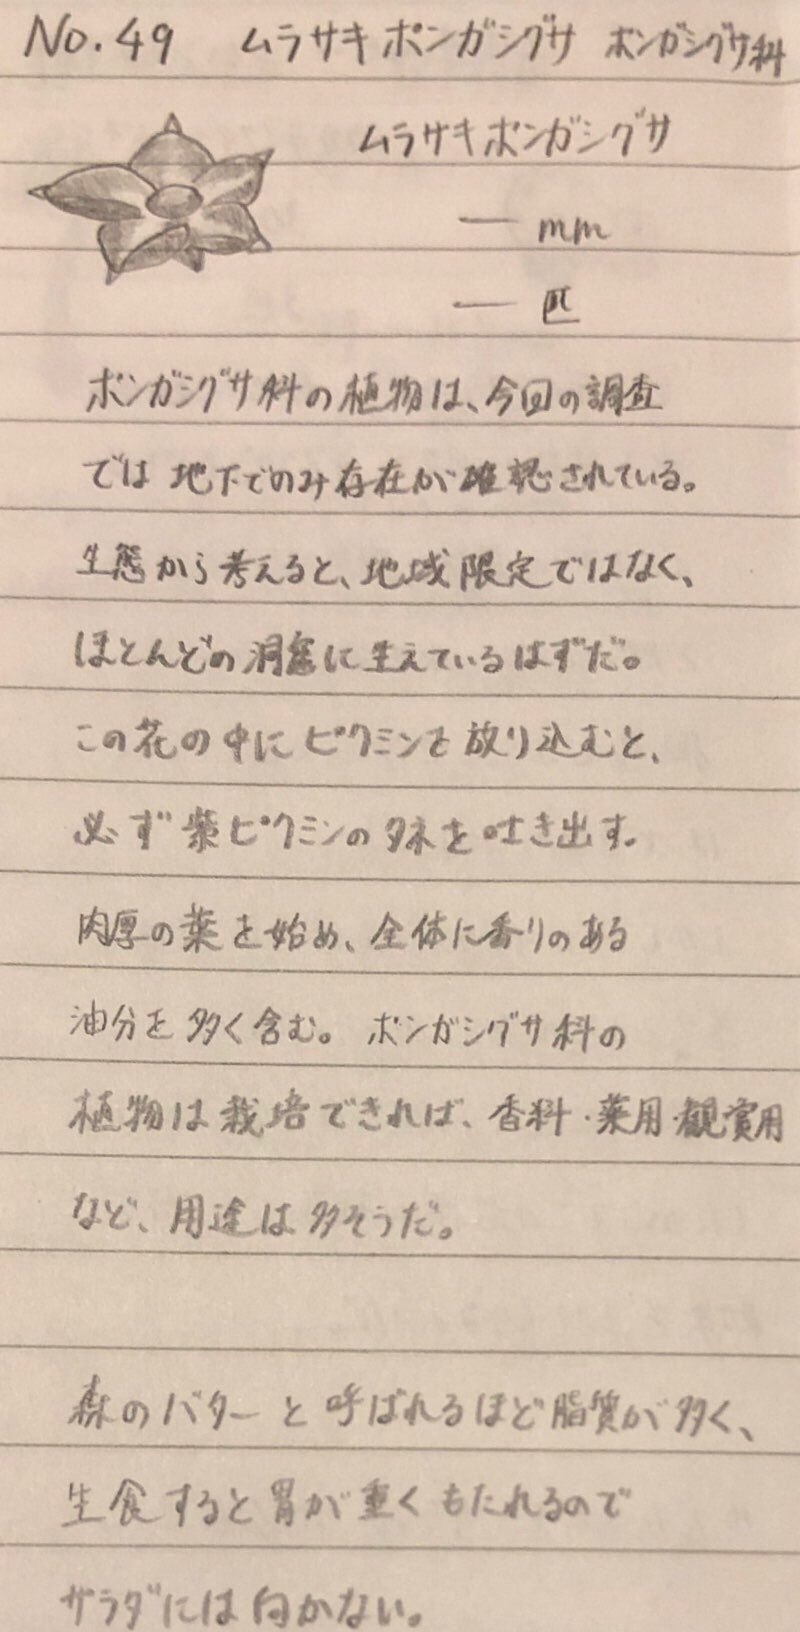 No.49 ムラサキポンガシグサ ポンガシグサ科
ムラサキポンガシグサ
— mm
— 匹
ポンガシグサ科の植物は、今回の調査
では地下でのみ存在が確認されている。
生態から考えると、地域限定ではなく、
ほとんどの洞窟に生えているはずだ。
この花の中にピクミンを放り込むと、
必ず紫ピクミンのタネを吐き出す。
肉厚の葉を始め、全体に香りのある
油分を多く含む。ポンガシグサ科の
植物は栽培できれば、香料・薬用・観賞用
など、用途は多そうだ。
森のバターと呼ばれるほど脂質が多く、
生食すると胃が重くもたれるので
サラダには向かない。